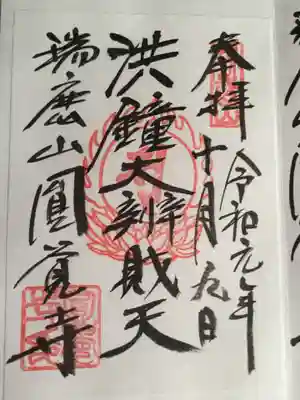 奉拝
令和元年
十月九日
洪鐘大辨財天
瑞鹿山圓覚寺